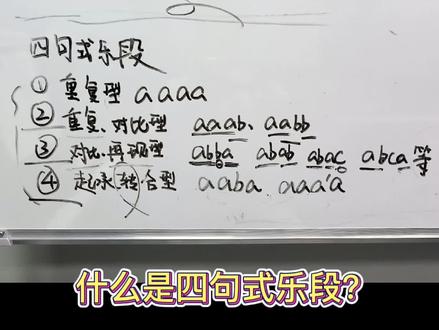 四句式乐段
① 重复型 aaaa
② 重复、对比型 aaab、aabb
③ 对比、再现型 abba abab abac abca 等
④ 起承转合型 aaba、aaa'a
什么是四句式乐段?